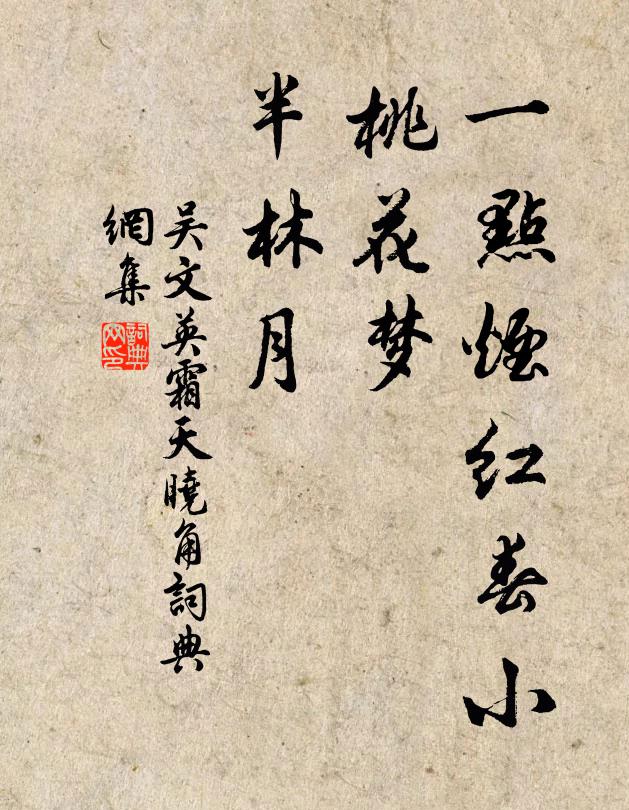 一點煙紅春小
桃花梦
半林月
吴文英霜天曉角詞典
網集
詞典
网印